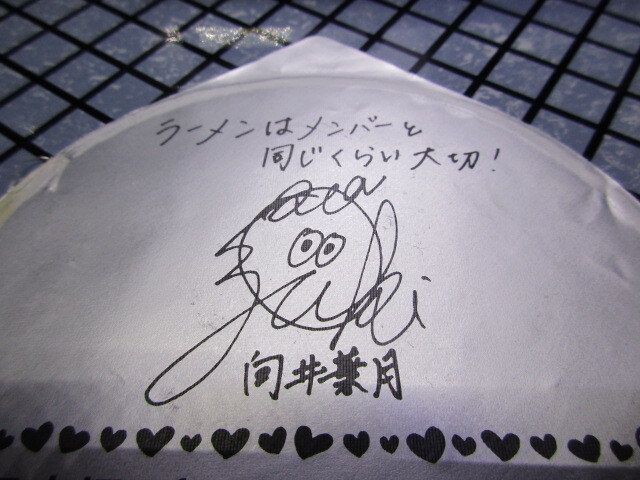 ラーメンはメンバーと
同じくらい大切!
向井葉月